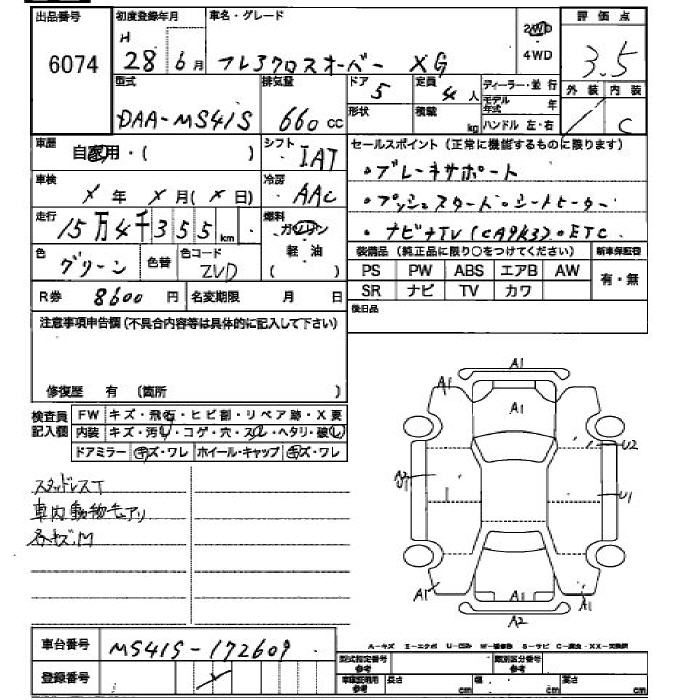 出品番号 初度登録年月 車名・グレード 評価点
6074 H 28年 6月 フレアクロスオーバー XG 2WD ・ 4WD 3.5
外装 内装
/ C
型式 排気量 ドア 定員 ディーラー・並行
DAA-MS41S 660 cc 5 4人 モデル年式 年
形状 積載 kg ハンドル 左・右
車歴 自家用・( ) シフト IAT セールスポイント(正常に機能するものに限ります)
・ブレーキサポート
車検 X年 X月(X日) 冷房 AAC
・プッシュスタート・シートヒーター
走行 15万4千355km 燃料 ガソリン 軽・油 ( )
・ナビナTV(CA9K3)・ETC
色 グリーン 色替 色コード ZVD
装備品(純正品に限り○をつけてください) 新車保証書
PS PW ABS エアB AW 有・無
SR ナビ TV カワ
R券 8600円 名変期限 月 日
後日品
注意事項申告欄(不具合内容等は具体的に記入して下さい)
修復歴 有 (箇所 )
検査員記入欄 FW キズ・飛石・ヒビ割・リペア跡・X要
内装 キズ・汚レ・コゲ・穴・スレ・ヘタリ・破レ
ドアミラー キズ・ワレ ホイール・キャップ キズ・ワレ
スタッドレスT
車内動物モウアリ
各キズ.M
A1
A1 A1
U2
U1
A1 A1 A1
A2
車台番号 MS41S-172609
登録番号
A-キズ E-エクボ U-凹ミ W-補修跡 S-サビ C-腐食・XX-交換済
型式指定番号参考 類別区分番号参考
車庫証明用参考 長さ cm 幅 cm 高さ cm